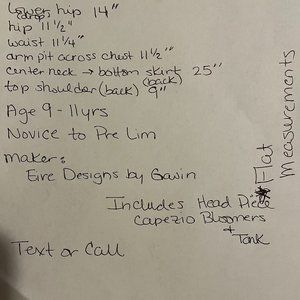 lower hip 14"
hip 11 1/2"
waist 11 1/4"
arm pit across chest 11 1/2"
center neck → bottom skirt 25"
(back)
top shoulder (back) 9"
Age 9-11yrs
Novice to Pre Lim
Maker:
Eire Designs by Gavin
Includes Head Piece
Capezio Bloomers
+ Tank
Text or Call
* Flat
Measurements